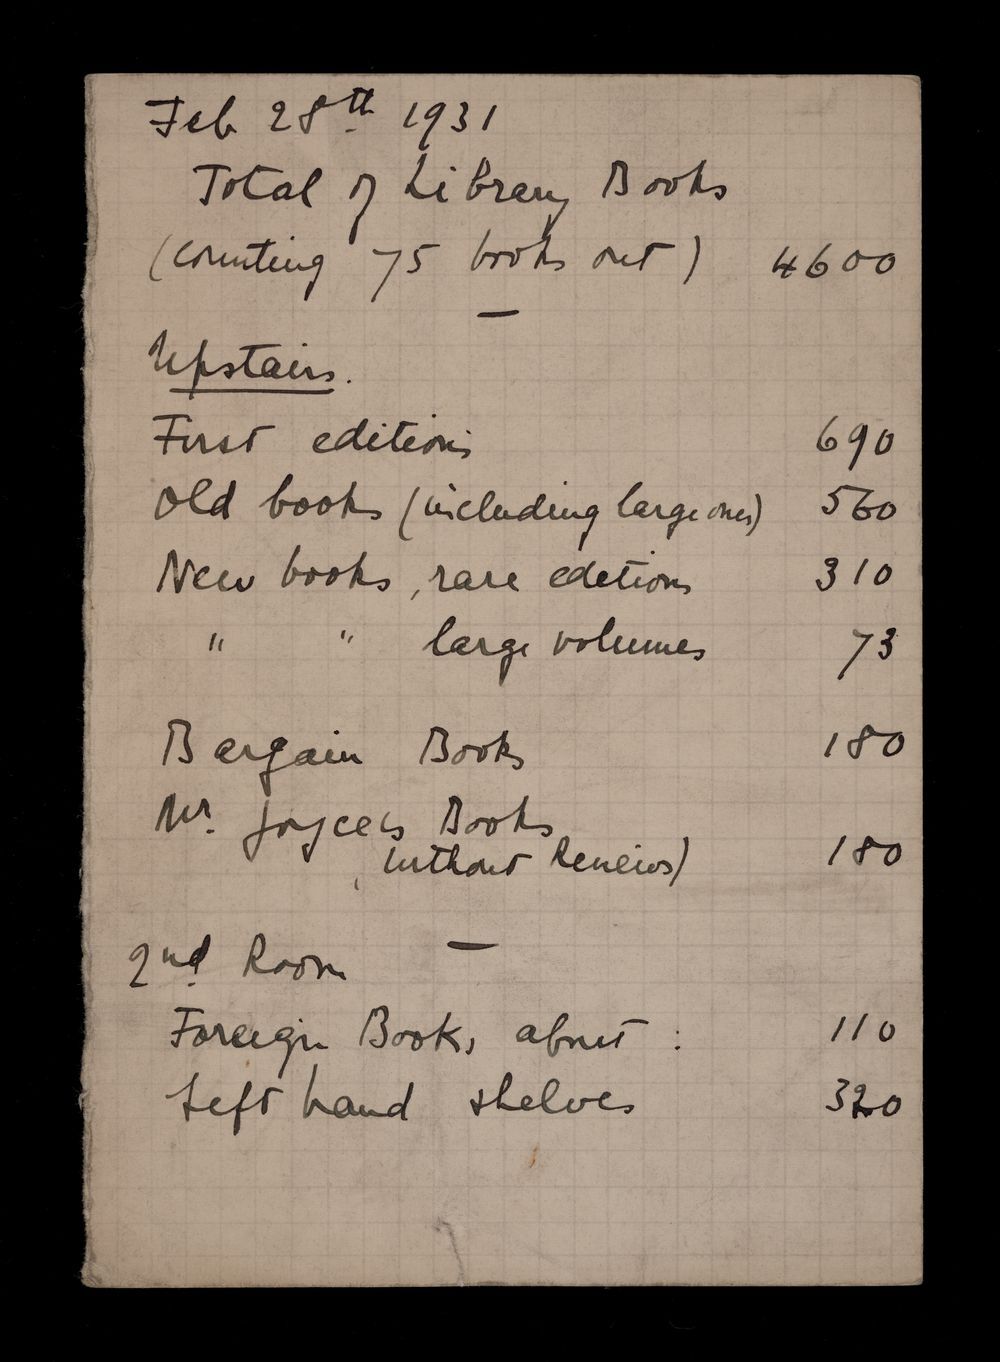 Feb 28th 1931
Total of Library Books
(counting 75 books out) 4600
—
Upstairs.
First editions 690
Old books (including large ones) 560
New books, rare editions 310
" " large volumes 73
Bargain Books 180
Mr. Joyce's Books
(without Reviews) 180
—
2nd Room
Foreign Books, about : 110
Left hand shelves 320